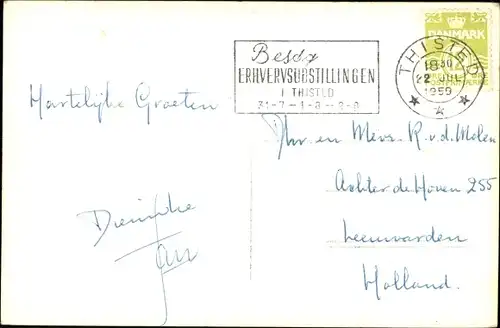 DANMARK
THISTED
1830
22 JUL
1959
Besøg
ERHVERVSUDSTILLINGEN
I THISTED
31-7 - 1-8 - 2-8
Hartelijke Groeten
Dhr. en Mevr. R. v. d. Molen
Achter de Hoven 255
Leeuwarden
Holland.